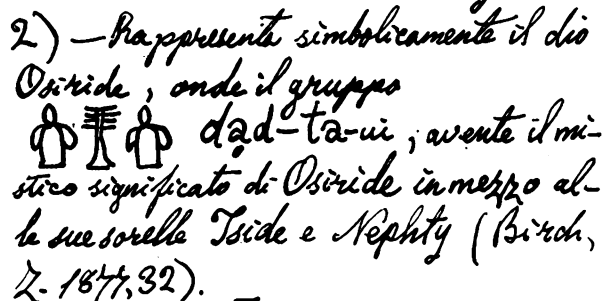 2) — Rappresenta simbolicamente il dio
Osiride, onde il gruppo
dạd-ta-ui, avente il mi-
stico significato di Osiride in mezzo al-
le sue sorelle Iside e Nephty (Birch,
Z. 1877, 32).